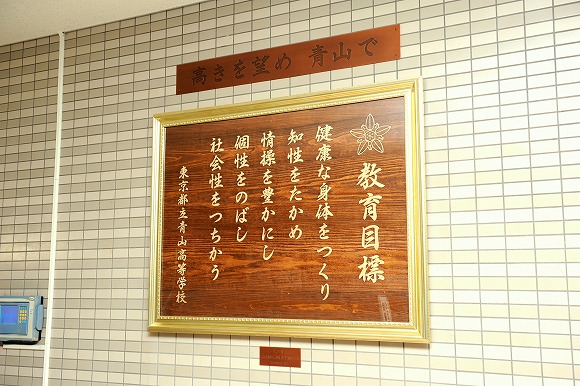 高きを望め 青山で
教育目標
健康な身体をつくり
知性をたかめ
情操を豊かにし
個性をのばし
社会性をつちかう
東京都立青山高等学校